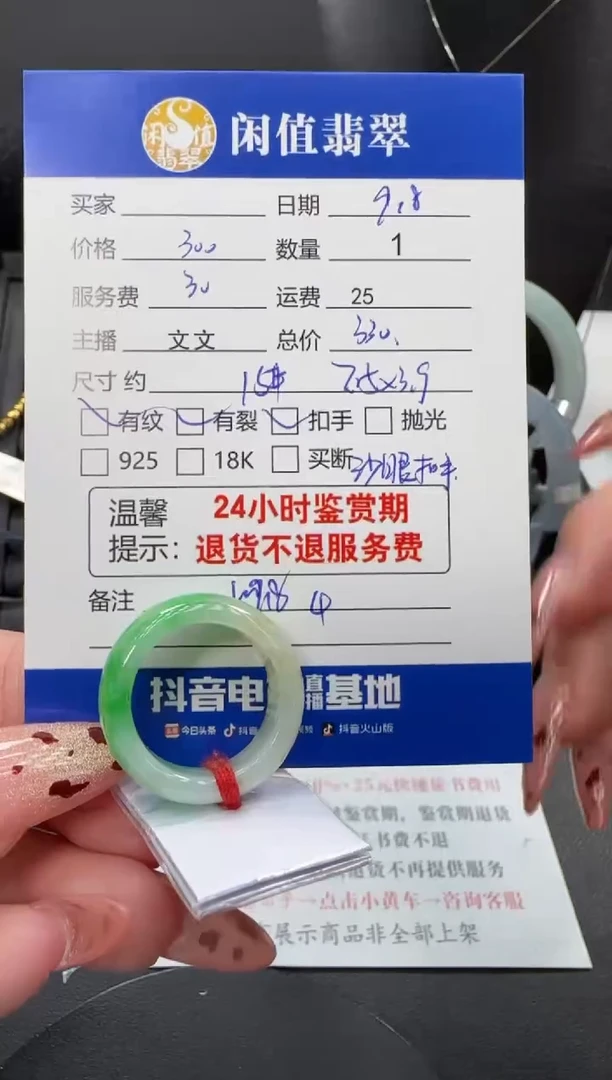 闲值翡翠
闲值翡翠
买家 日期 9.8
价格 300 数量 1
服务费 30 运费 25
主播 文文 总价 330.
尺寸 约 15# 7.5×3.9
有纹 有裂 扣手 抛光
925 18K 买断
温馨提示: 24小时鉴赏期
退货不退服务费
备注 4
抖音电 直播基地
今日头条 抖音 视频 抖音火山版
25元快速证书费用
鉴赏期,鉴赏期退货
证书费不退
退货不再提供服务
点击小黄车→咨询客服
展示商品非全部上架